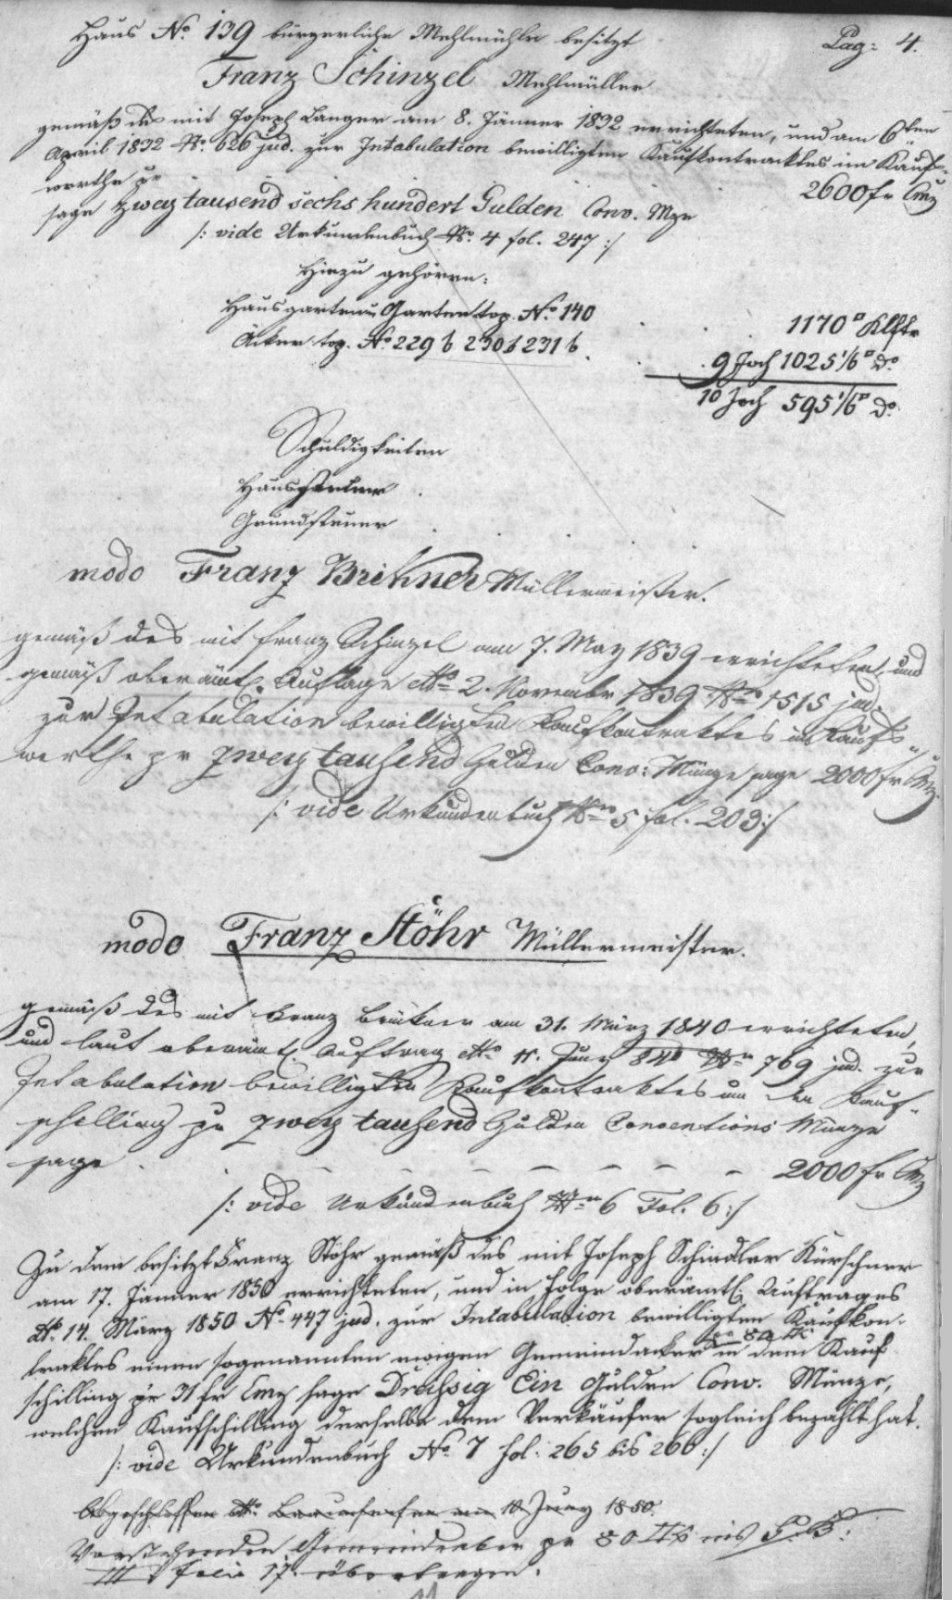 Haus No. 139 bürgerliche Mehlmühle besitzt Pag: 4.
Franz Schinzel Mehlmüller
gemäß des mit Joseph Langer am 8. Jänner 1832 errichteten, und am 6ten
April 1832 No. 626 jud. zur Intabulation bewilligten Kaufkontracktes im Kauf-
werthe pr 2600 fr CMz
sage Zwey tausend sechs hundert Gulden Conv. Mze
/: vide Urkundenbuch No. 4 fol. 247 :/
Hiezu gehören:
Hausgarten u Garten top. No. 140 1170° Klftr
Äcker top. No 229 b 230 b 231 b. 9 Joch 1025 1/6° do.
10 Joch 595 1/6° do.
Schuldigkeiten
Haussteuer
Grundsteuer
modo Franz Brikner Müllermeister.
gemäß des mit Franz Schinzel am 7. May 1839 errichteten, und
gemäß oberämtl. Auflage dto 2. Novembr 1839 No 1515 jud.
zur Intabulation bewilligten Kaufkontraktes im Kaufs-
werthe pr zwey tausend Gulden Conv: Münze sage 2000 fr CMz
/: vide Urkundenbuch Nro 5 fol. 203 :/
modo Franz Stöhr Müllermeister.
gemäß des mit Franz Brükner am 31. März 1840 errichteten,
und laut oberämtl. Auftrag dto 11. Juny 840 No 769 jud. zur
Intabulation bewilligten Kaufkontraktes um den Kauf-
schilling pr zwey tausend Gulden Conventions Münze
sage 2000 fr CMz
/: vide Urkundenbuch Nro 6 Fol. 6 :/
Zu dem besitzt Franz Stöhr gemäß des mit Joseph Schindler Kürschner
am 17. Jänner 1850 errichteten, und in Folge oberämtl. Auftrages
dto. 14. März 1850 No. 447 jud. zur Intabulation bewilligten Kaufkon-
traktes einen sogenannten ewigen Gemeindacker pr 80 □° in dem Kauf
schilling pr 31 fr CMz sage Dreißsig Ein Gulden Conv. Münze,
welchen Kaufschilling derselbe dem Verkäufer sogleich bezahlt hat.
/: vide Urkundenbuch No. 7 fol: 265 bis 266 :/
Abgeschlossen am 10 Juny 1850.
Vorstehenden Gemeindeaker pr 80 □° ins G. B.
III Folio 17. übertragen.